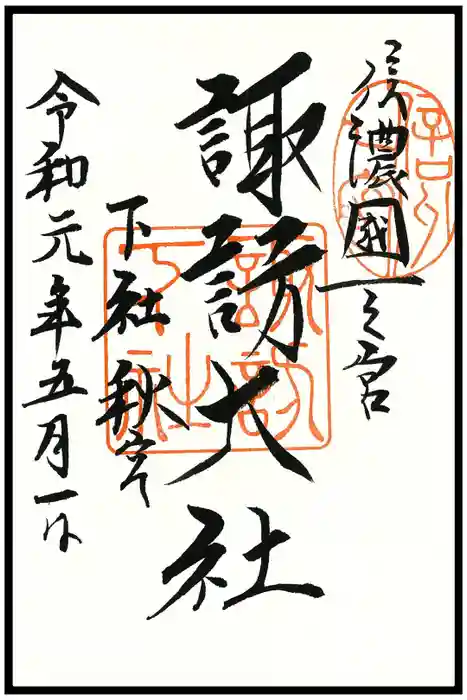 信濃國一之宮
諏訪大社
下社 秋宮
令和元年五月一日